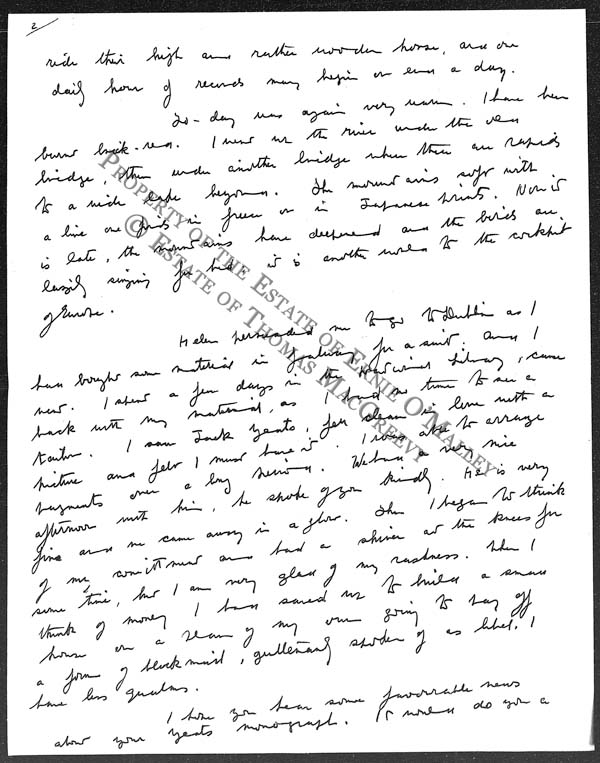 2
ride their high and rather wooden horse, and one
daily hour of records may begin or end a day.
To-day was again very warm. I have been
burnt brick-red. I went up the river under the
bridge, then under another bridge where there are rapids
to a wide lake beyond. The mountains soft with
a line one finds in Greece or in Japanese prints. Now it
is late, the mountains have deepened and the birds are
lazily singing for bed. It is another world to the cockpit
of Europe.
Helen persuaded me to go to Dublin as I
have bought some material in Galway for a suit. And I
went. I spent a few days in the National Library, came
back with my material, as I had no time to see a
tailor. I saw Jack Yeats, fell clean in love with a
picture and felt I must have it. I was able to arrange
payments over a long period. We had a very nice
afternoon with him, he spoke of you kindly. He is very
fine and we came away in a glow. Then I began to think
of my commitment and had a shiver at the knees for
some time, but I am very glad of my rashness. When I
think of money I have saved up to build a small
house or a dream of my own going to pay off
a form of blackmail, genteelly spoken of as libel, I
have less qualms.
I hope you hear some favourable news
about your Yeats monograph. It would do you a
PROPERTY OF THE ESTATE OF ERNIE O'MALLEY
© ESTATE OF THOMAS MACGREEVY